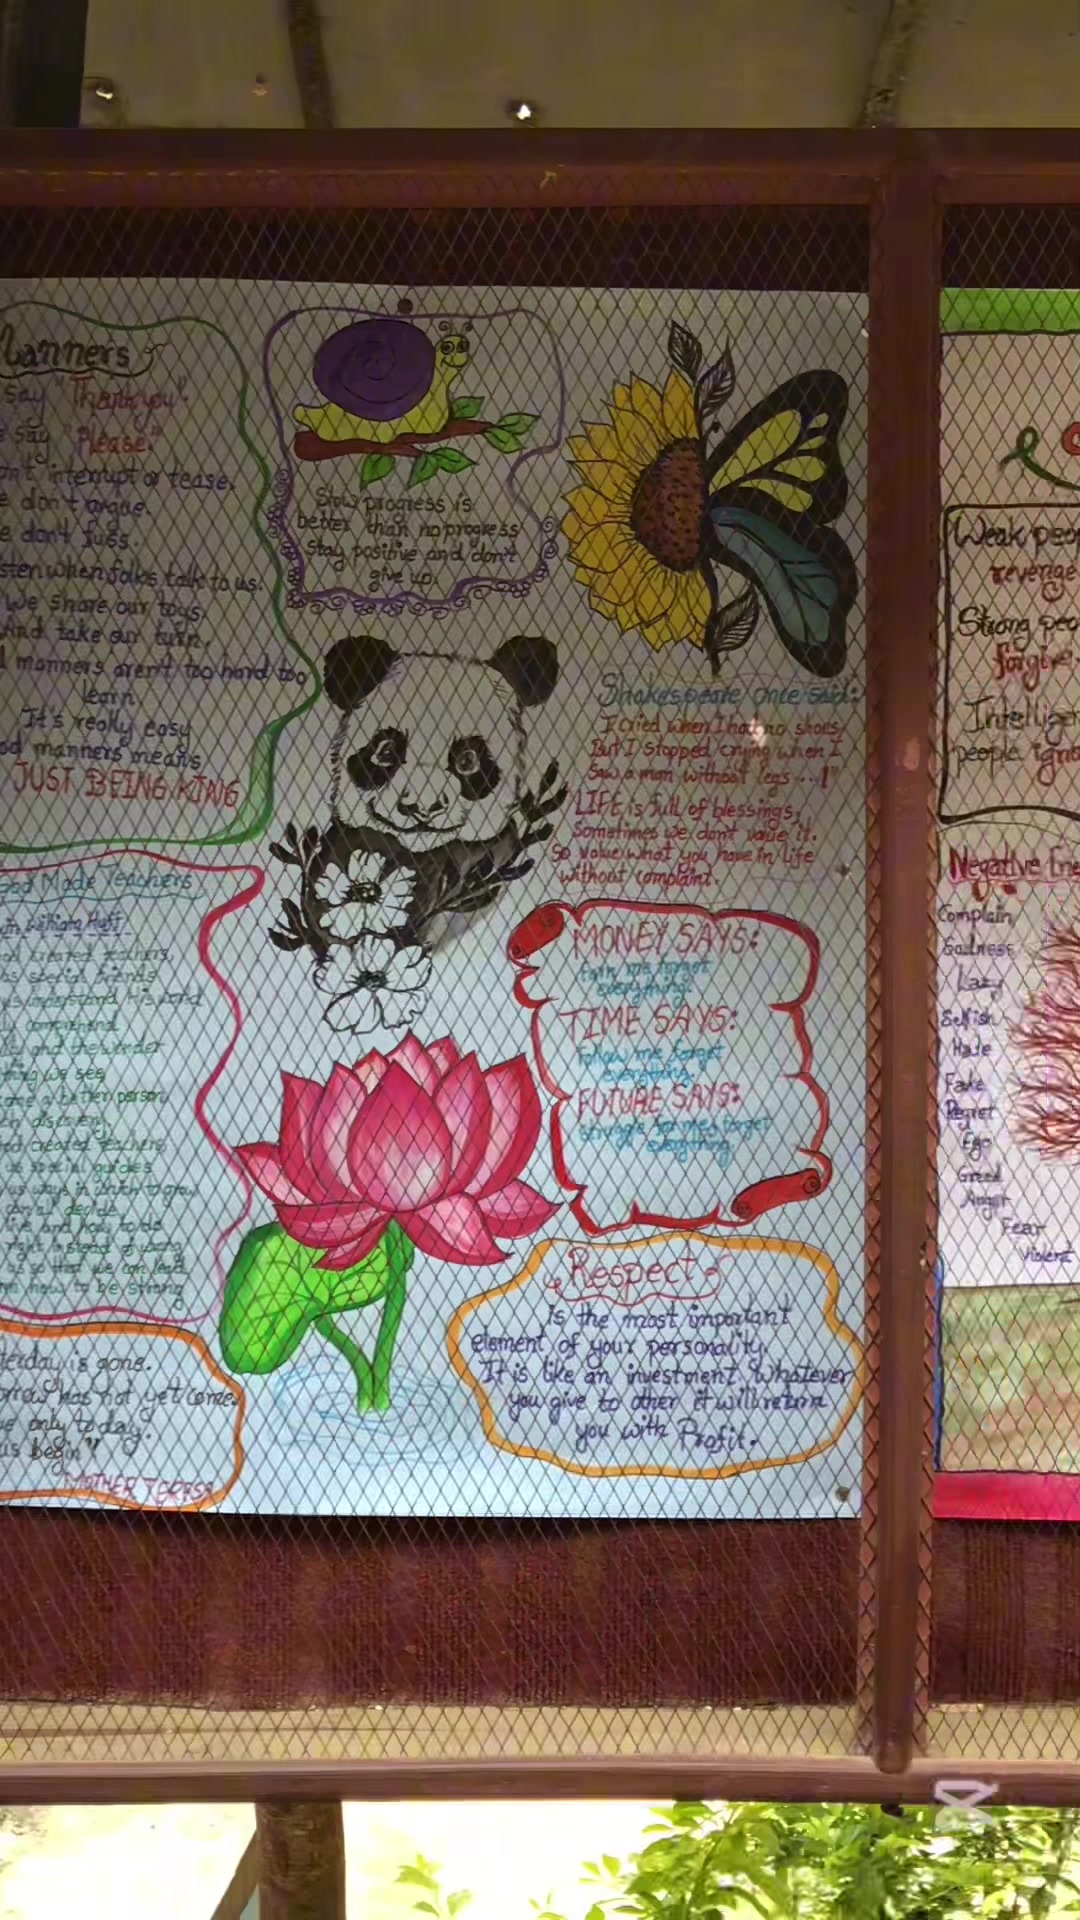 Manners
say "Thank you".
say "Please"
interrupt or tease.
don't argue.
don't fuss.
when folks talk to us.
we share our toys
take our turn.
manners aren't too hard to
learn.
It's really easy
manners means
JUST BEING KING
Slow progress is
better than no progress
Stay positive and don't
give up.
Shakespeare once said:
I cried when I had no shoes,
But I stopped crying when I
Saw a man without legs
LIFE is full of blessings,
Sometimes we don't value it.
So value what you have in Life
without complaint.
Made Teachers
created teachers,
special friends
understand His world
comprehend
and the wonder
we see
a better person
discovery
created teachers
special guides
ways in which to grow
decide
live and how to do
right instead of wrong
us so that we can lead
how to be strong
is gone.
has not yet come.
only today.
begin"
MOTHER TERESA
MONEY SAYS:
me forget
everything.
TIME SAYS:
Follow me forget
everything.
FUTURE SAYS:
struggle for me forget
everything
Respect
is the most important
element of your personality.
It is like an investment. Whatever
you give to other it will return
you with Profit.
Weak
revenge
Strong
forgive
people
Negative
Complain
Sadness
Lazy
Selfish
Hate
Fake
Regret
Ego
Greed
Anger
Fear
Violent